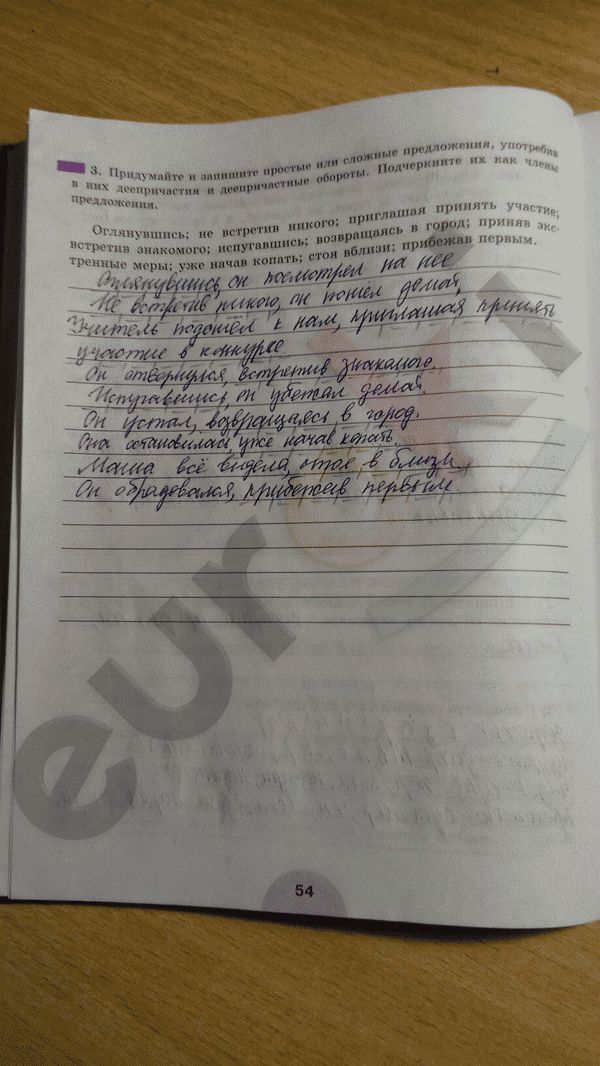 3. Придумайте и запишите простые или сложные предложения, употребив
в них деепричастия и деепричастные обороты. Подчеркните их как члены
предложения.
Оглянувшись; не встретив никого; приглашая принять участие;
встретив знакомого; испугавшись; возвращаясь в город; приняв экс-
тренные меры; уже начав копать; стоя вблизи; прибежав первым.
Оглянувшись, он посмотрел на неё
Не встретив никого, он пошел домой,
Учитель подошёл к нам, приглашая принять
участие в конкурсе.
Он отвернулся, встретив знакомого.
Испугавшись, он убежал домой.
Он устал, возвращаясь в город.
Она остановилась уже начав копать.
Маша всё видела, стоя в близи,
Он обрадовался, прибежав первым.
eurоki
54